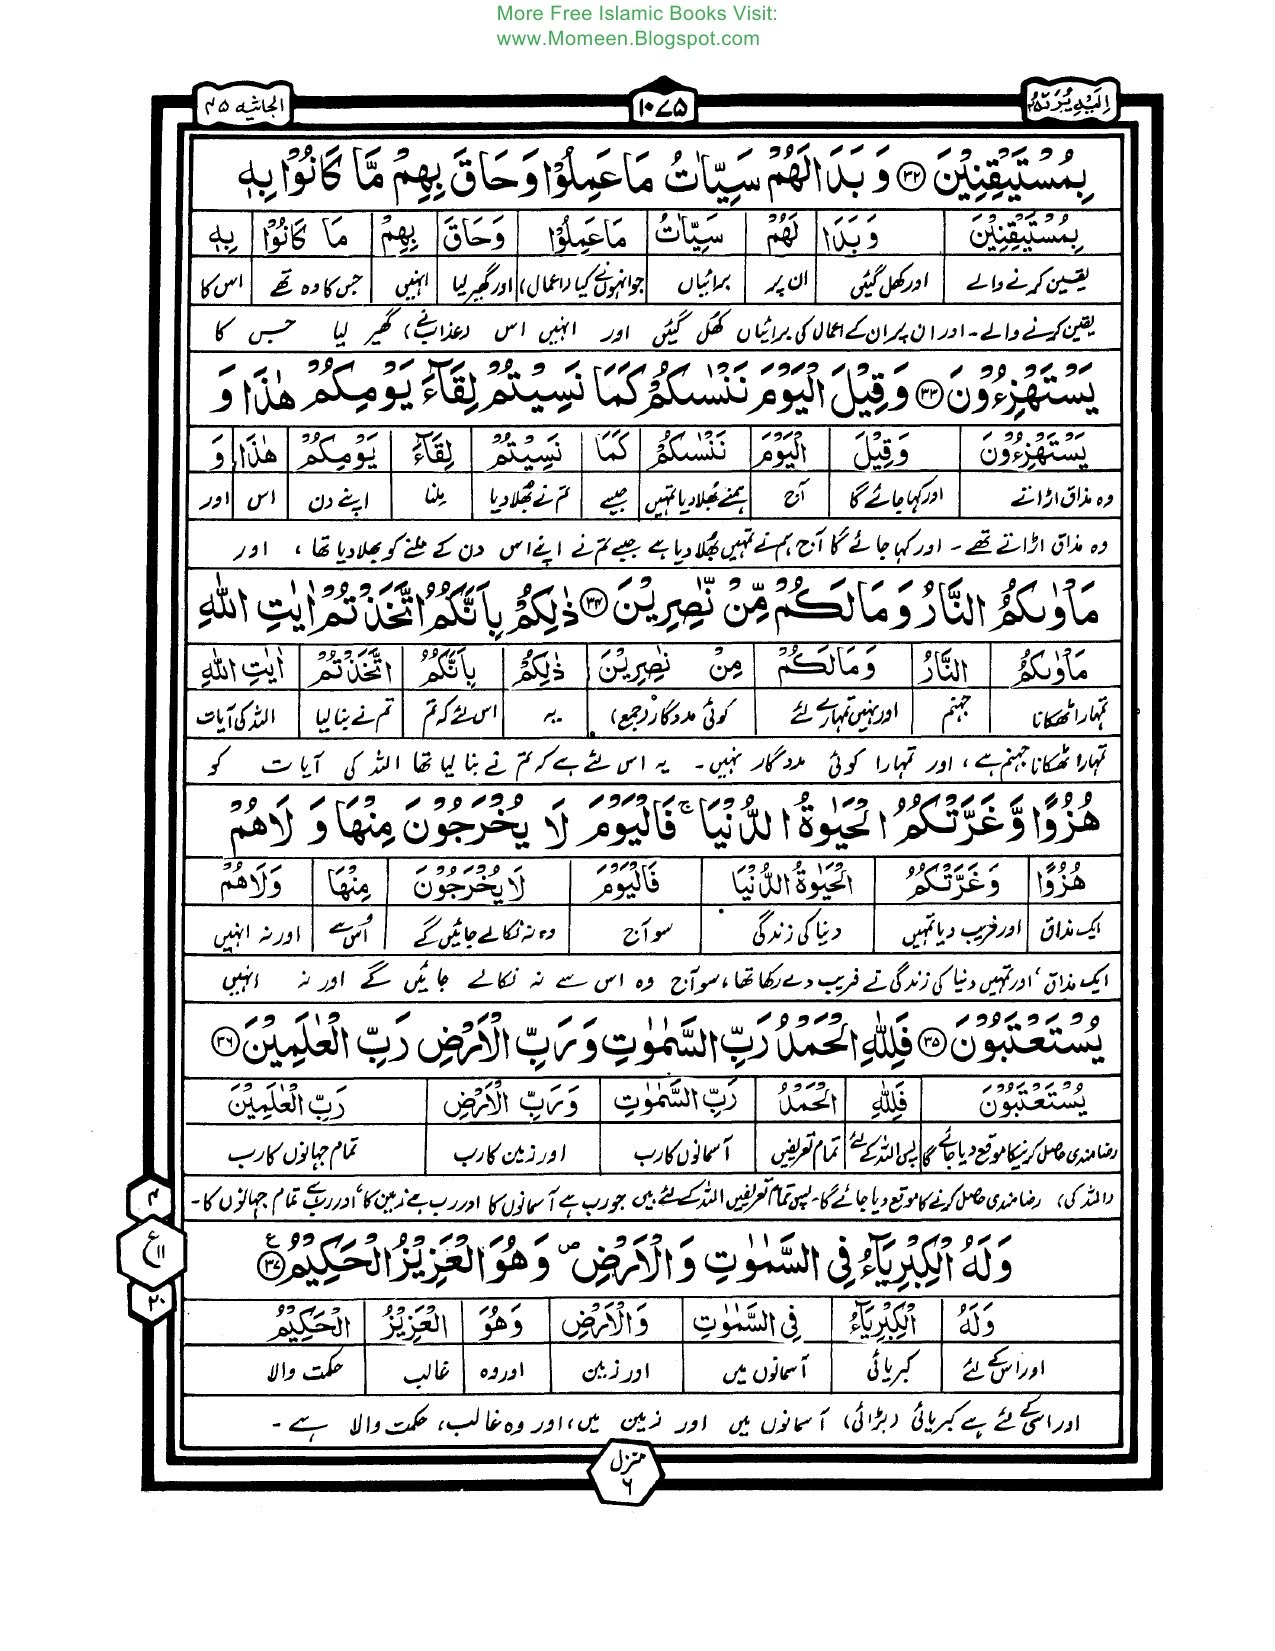 More Free Islamic Books Visit:
www.Momeen.Blogspot.com
اِلَیْهِ یُرَدُّ ۲۵
۱۰۷۵
الجاثیه ۴۵
بِمُسْتَيْقِنِيْنَ ۳۲ وَبَدَا لَهُمْ سَيِّاٰتُ مَا عَمِلُوْا وَحَاقَ بِهِمْ مَّا كَانُوْا بِهٖ
بِمُسْتَيْقِنِيْنَ وَبَدَا لَهُمْ سَيِّاٰتُ مَا عَمِلُوْا وَحَاقَ بِهِمْ مَا كَانُوْا بِهٖ
یقین کرنے والے اور کھل گئیں ان پر برائیاں جو انہوں نے کیا (اعمال) اور گھیر لیا انہیں جس کا وہ تھے اس کا
یقین کرنے والے۔ اور ان پر ان کے اعمال کی برائیاں کھل گئیں اور انہیں اس (عذاب نے) گھیر لیا جس کا
يَسْتَهْزِءُوْنَ ۳۳ وَقِيْلَ الْيَوْمَ نَنْسٰىكُمْ كَمَا نَسِيْتُمْ لِقَآءَ يَوْمِكُمْ هٰذَا وَ
يَسْتَهْزِءُوْنَ وَقِيْلَ الْيَوْمَ نَنْسٰىكُمْ كَمَا نَسِيْتُمْ لِقَآءَ يَوْمِكُمْ هٰذَا وَ
وہ مذاق اڑاتے اور کہا جائے گا آج ہم نے بھلا دیا تمہیں جیسے تم نے بھلا دیا ملنا اپنے دن اس اور
وہ مذاق اڑاتے تھے۔ اور کہا جائے گا آج ہم نے تمہیں بھلا دیا ہے جیسے تم نے اپنے اس دن کے ملنے کو بھلا دیا تھا، اور
مَاْوٰىكُمُ النَّارُ وَمَا لَكُمْ مِّنْ نّٰصِرِيْنَ ۳۴ ذٰلِكُمْ بِاَنَّكُمُ اتَّخَذْتُمْ اٰيٰتِ اللّٰهِ
مَاْوٰىكُمُ النَّارُ وَمَا لَكُمْ مِنْ نٰصِرِيْنَ ذٰلِكُمْ بِاَنَّكُمُ اتَّخَذْتُمْ اٰيٰتِ اللّٰهِ
تمہارا ٹھکانا جہنم اور نہیں تمہارے لئے کوئی مددگار (جمع) یہ اس لئے کہ تم تم نے بنا لیا اللہ کی آیات
تمہارا ٹھکانا جہنم ہے، اور تمہارا کوئی مددگار نہیں۔ یہ اس لئے ہے کہ تم نے بنا لیا تھا اللہ کی آیات کو
هُزُوًا وَّغَرَّتْكُمُ الْحَيٰوةُ الدُّنْيَا ۚ فَالْيَوْمَ لَا يُخْرَجُوْنَ مِنْهَا وَلَا هُمْ
هُزُوًا وَغَرَّتْكُمُ الْحَيٰوةُ الدُّنْيَا فَالْيَوْمَ لَا يُخْرَجُوْنَ مِنْهَا وَلَا هُمْ
ایک مذاق اور فریب دیا تمہیں دنیا کی زندگی سو آج وہ نہ نکالے جائیں گے اُس سے اور نہ انہیں
ایک مذاق، اور تمہیں دنیا کی زندگی نے فریب دے رکھا تھا، سو آج وہ اس سے نہ نکالے جائیں گے اور نہ انہیں
يُسْتَعْتَبُوْنَ ۳۵ فَلِلّٰهِ الْحَمْدُ رَبِّ السَّمٰوٰتِ وَرَبِّ الْاَرْضِ رَبِّ الْعٰلَمِيْنَ ۳۶
يُسْتَعْتَبُوْنَ فَلِلّٰهِ الْحَمْدُ رَبِّ السَّمٰوٰتِ وَرَبِّ الْاَرْضِ رَبِّ الْعٰلَمِيْنَ
رضامندی حاصل کرنیکا موقع دیا جائے گا پس اللہ کے لئے تمام تعریفیں آسمانوں کا رب اور زمین کا رب تمام جہانوں کا رب
(اللہ کی) رضامندی حاصل کرنے کا موقع دیا جائے گا۔ پس تمام تعریفیں اللہ کے لئے ہیں جو رب ہے آسمانوں کا اور رب ہے زمین کا، اور رب ہے تمام جہانوں کا۔
وَلَهُ الْكِبْرِيَآءُ فِى السَّمٰوٰتِ وَالْاَرْضِ ص وَهُوَ الْعَزِيْزُ الْحَكِيْمُ ۳۷ ع
وَلَهُ الْكِبْرِيَآءُ فِى السَّمٰوٰتِ وَالْاَرْضِ وَهُوَ الْعَزِيْزُ الْحَكِيْمُ
اور اس کے لئے کبریائی آسمانوں میں اور زمین اور وہ غالب حکمت والا
اور اسی کے لئے ہے کبریائی (بڑائی) آسمانوں میں اور زمین میں، اور وہ غالب، حکمت والا ہے۔
۴
ع ۱۱
۲۰
منزل ۶